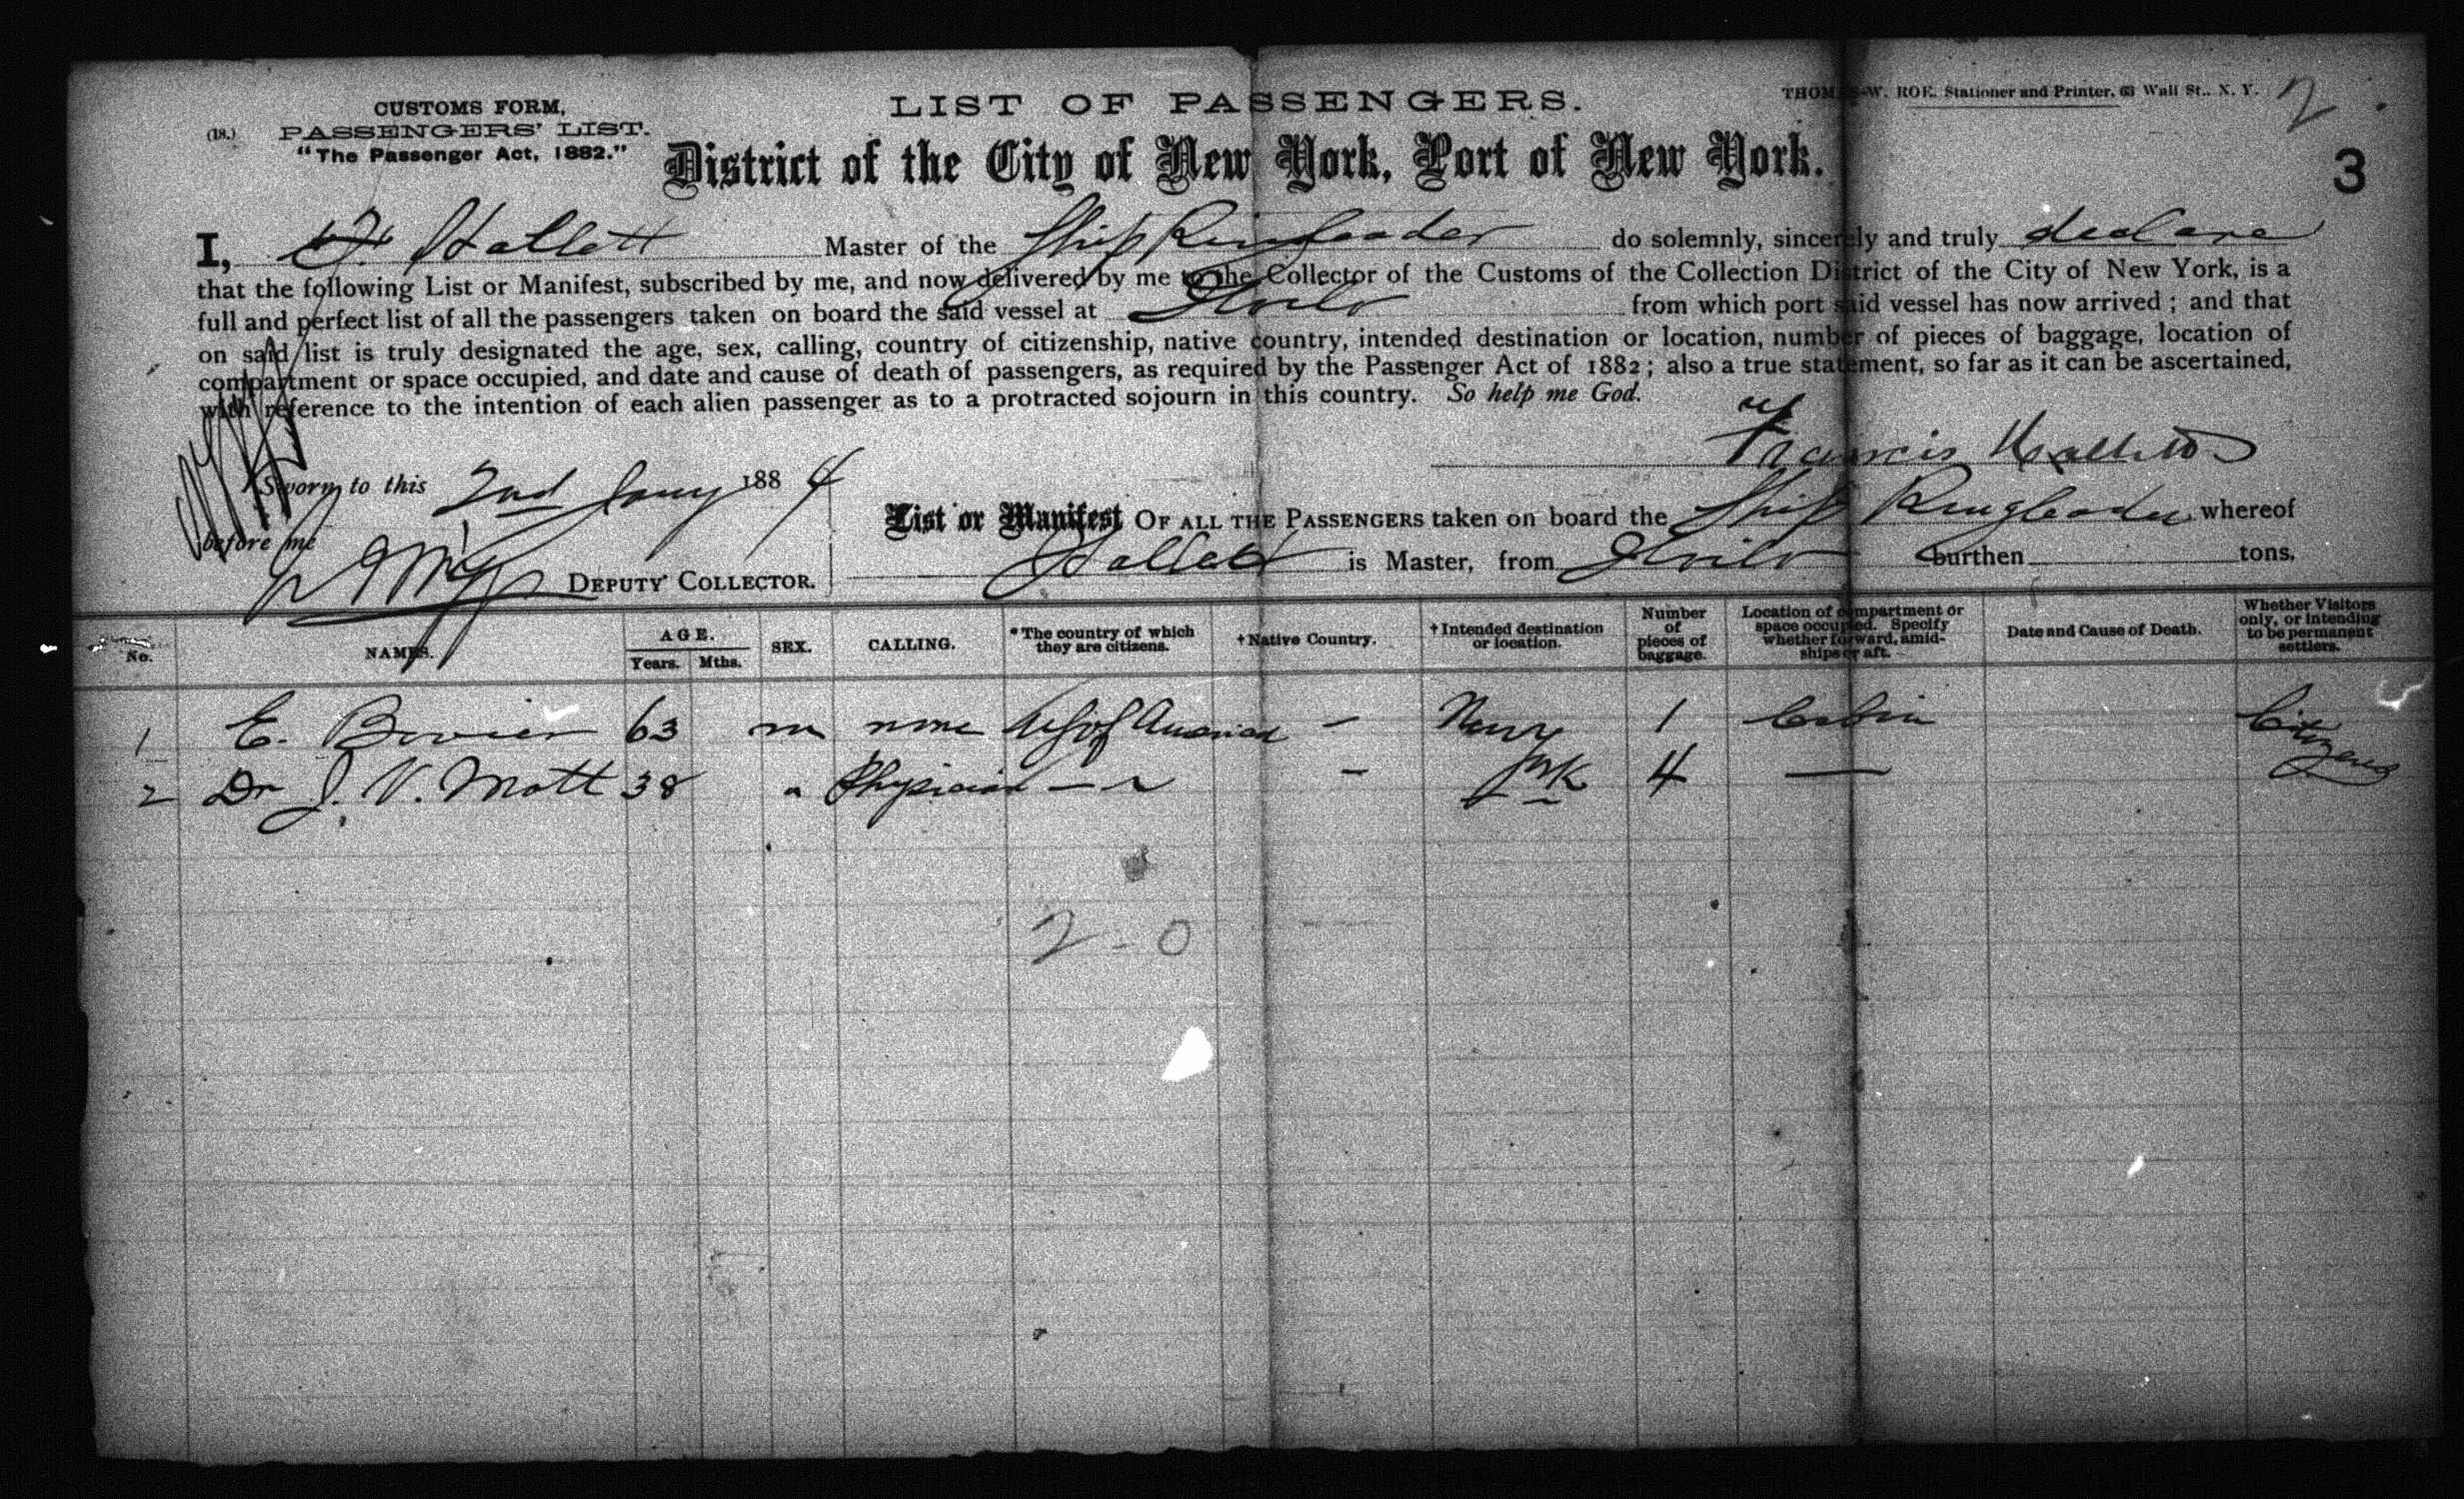 CUSTOMS FORM,
(18.) PASSENGERS' LIST.
"The Passenger Act, 1882."
LIST OF PASSENGERS.
THOMAS W. ROE. Stationer and Printer, 63 Wall St., N. Y.
2
3
District of the City of New York, Port of New York.
I, F. Hallett Master of the Ship Ringleader do solemnly, sincerely and truly declare
that the following List or Manifest, subscribed by me, and now delivered by me to the Collector of the Customs of the Collection District of the City of New York, is a
full and perfect list of all the passengers taken on board the said vessel at Iloilo from which port said vessel has now arrived; and that
on said list is truly designated the age, sex, calling, country of citizenship, native country, intended destination or location, number of pieces of baggage, location of
compartment or space occupied, and date and cause of death of passengers, as required by the Passenger Act of 1882; also a true statement, so far as it can be ascertained,
with reference to the intention of each alien passenger as to a protracted sojourn in this country. So help me God.
Francis Hallett
Sworn to this 2nd Jany 1884
before me
DEPUTY COLLECTOR.
List or Manifest OF ALL THE PASSENGERS taken on board the Ship Ringleader whereof
Hallett is Master, from Iloilo burthen tons.
No. NAMES. AGE. Years. Mths. SEX. CALLING. *The country of which they are citizens. †Native Country. †Intended destination or location. Number of pieces of baggage. Location of compartment or space occupied. Specify whether forward, amidships or aft. Date and Cause of Death. Whether Visitors only, or intending to be permanent settlers.
1 E. 63 m none US of America - New 1 Cabin Citizens
2 Dr J. V. Mott 38 " Physician — " - York 4 —
2 - 0